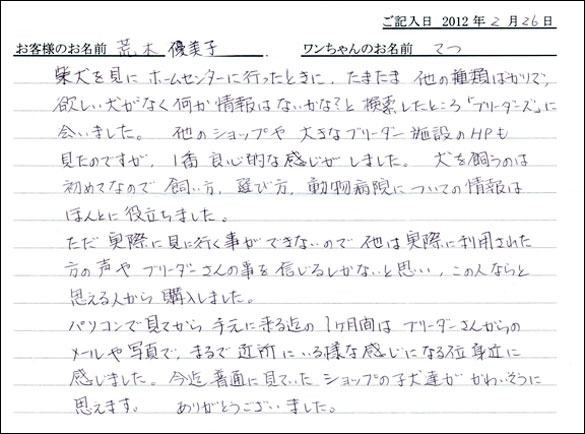 ご記入日 2012年2月26日
お客様のお名前 荒木 優美子 ワンちゃんのお名前 てつ
柴犬を見に ホームセンターに行ったときに、たまたま 他の種類ばかりで、
欲しい犬がなく何か情報はないかな?と 検索したところ「ブリーダーズ」に
会いました。 他のショップや 大きなブリーダー施設のHPも
見たのですが、1番 良心的な感じがしました。 犬を飼うのは
初めてなので 飼い方、選び方、動物病院についての情報は
ほんとに役立ちました。
ただ 実際に見に行く事ができないので 他は実際に利用された
方の声や ブリーダーさんの事を 信じるしかないと思い、この人ならと
思える人から 購入しました。
パソコンで見てから 手元に来る迄の 1ヶ月間は ブリーダーさんからの
メールや写真で、まるで 近所 にいる様な感じになる位 身近に
感じました。今迄 普通に見ていた ショップの子犬達が かわいそうに
思えます。 ありがとうございました。